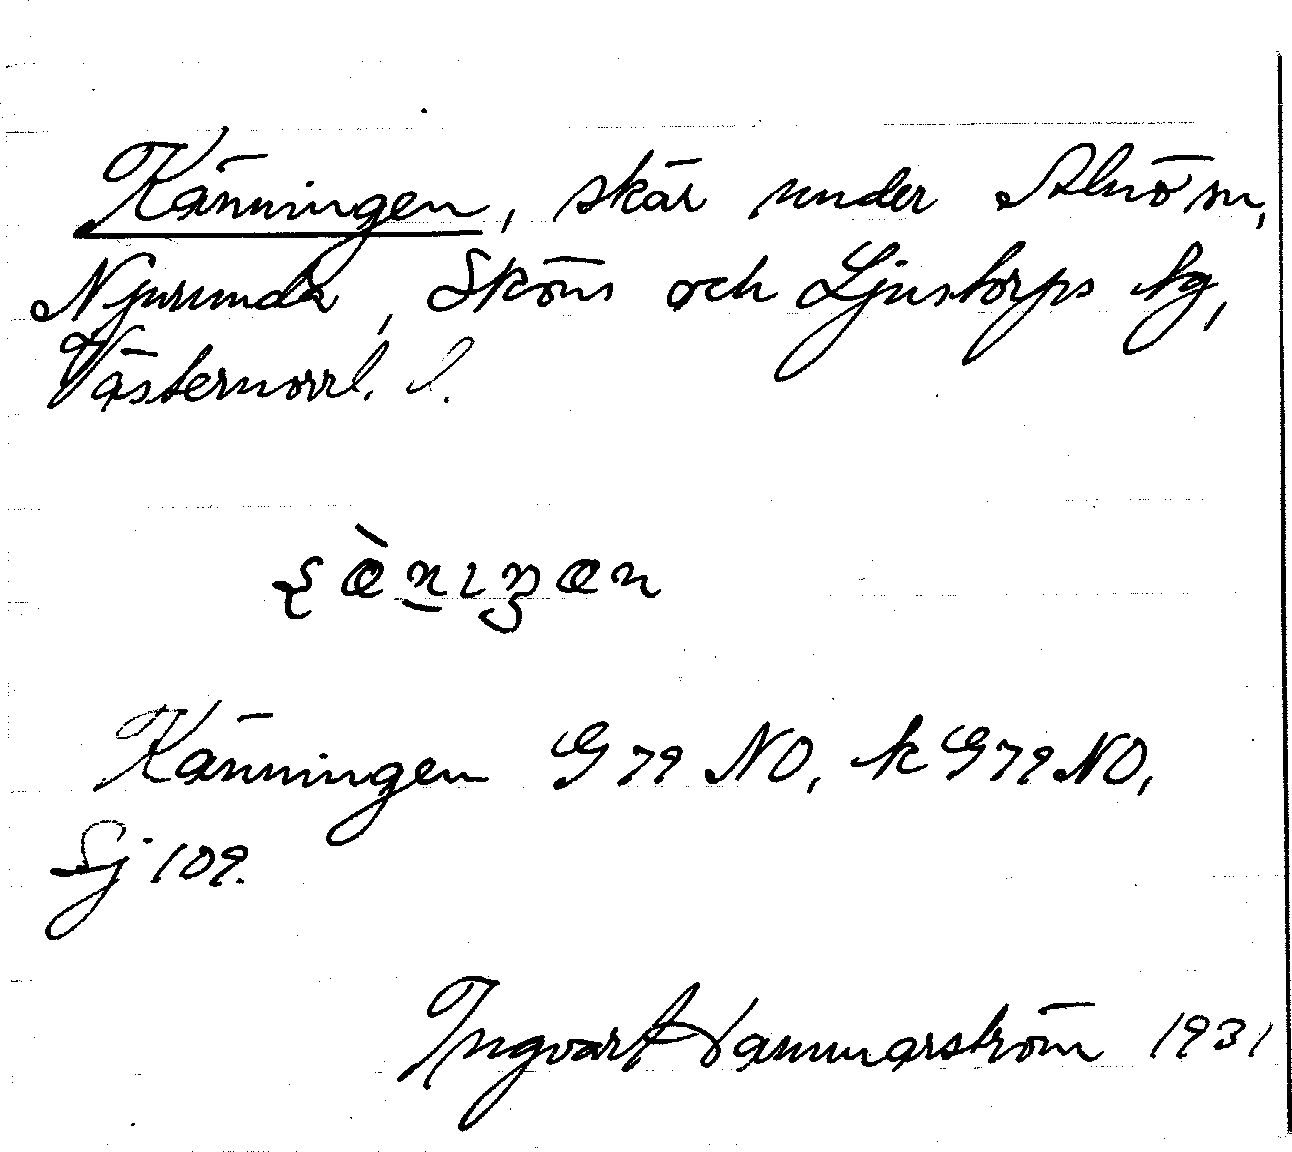 Känningen, skär under Alnö sn,
Njurunda, Sköns och Ljustorps tg,
Västernorrl. l.
Känningen G79 NO, k G79 NO,
Sj 109.
Ingvar Hammarström 1931